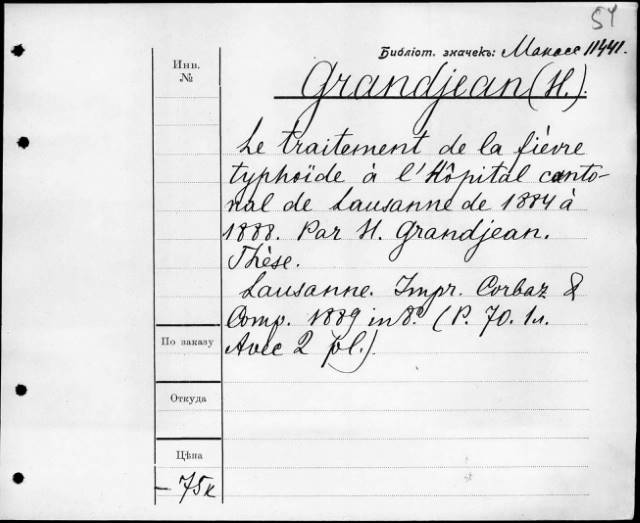 54
Библіот. значекъ: Макасс 11441.
Инв.
№
Grandjean (H.).
Le traitement de la fièvre
typhoïde à l'Hôpital canto-
nal de Lausanne de 1884 à
1888. Par H. Grandjean.
Thèse.
Lausanne. Impr. Corbaz &
Comp. 1889 in 8º. (P. 70. 1л.
Avec 2 pl.).
По заказу
Откуда
Цѣна
– 75к